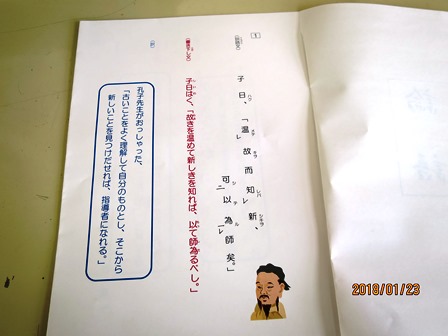 1
子曰、「温故而知新、
可以為師矣。」
子曰はく、「故きを温めて新しきを知れば、以て師為るべし。」
孔子先生がおっしゃった、
「古いことをよく理解して自分のものとし、そこから
新しいことを見つけだせれば、指導者になれる。」
2018/01/23